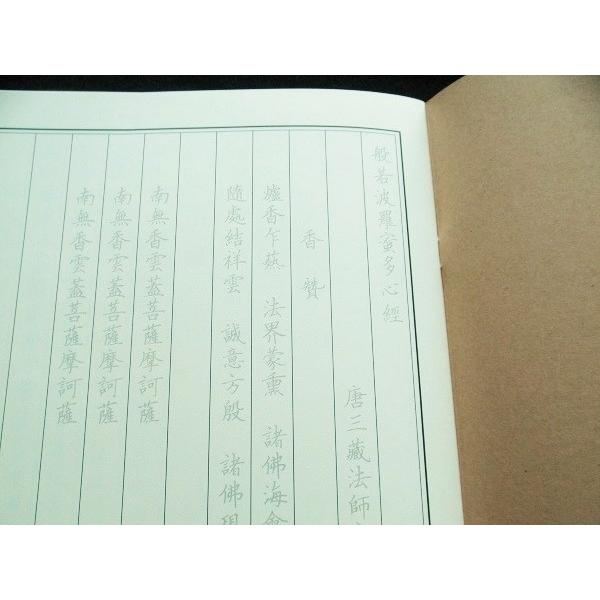 般若波羅蜜多心經
唐三藏法師
香贊
爐香乍爇 法界蒙熏 諸佛海會
隨處結祥雲 誠意方殷 諸佛現
南無香雲蓋菩薩摩訶薩
南無香雲蓋菩薩摩訶薩
南無香雲蓋菩薩摩訶薩